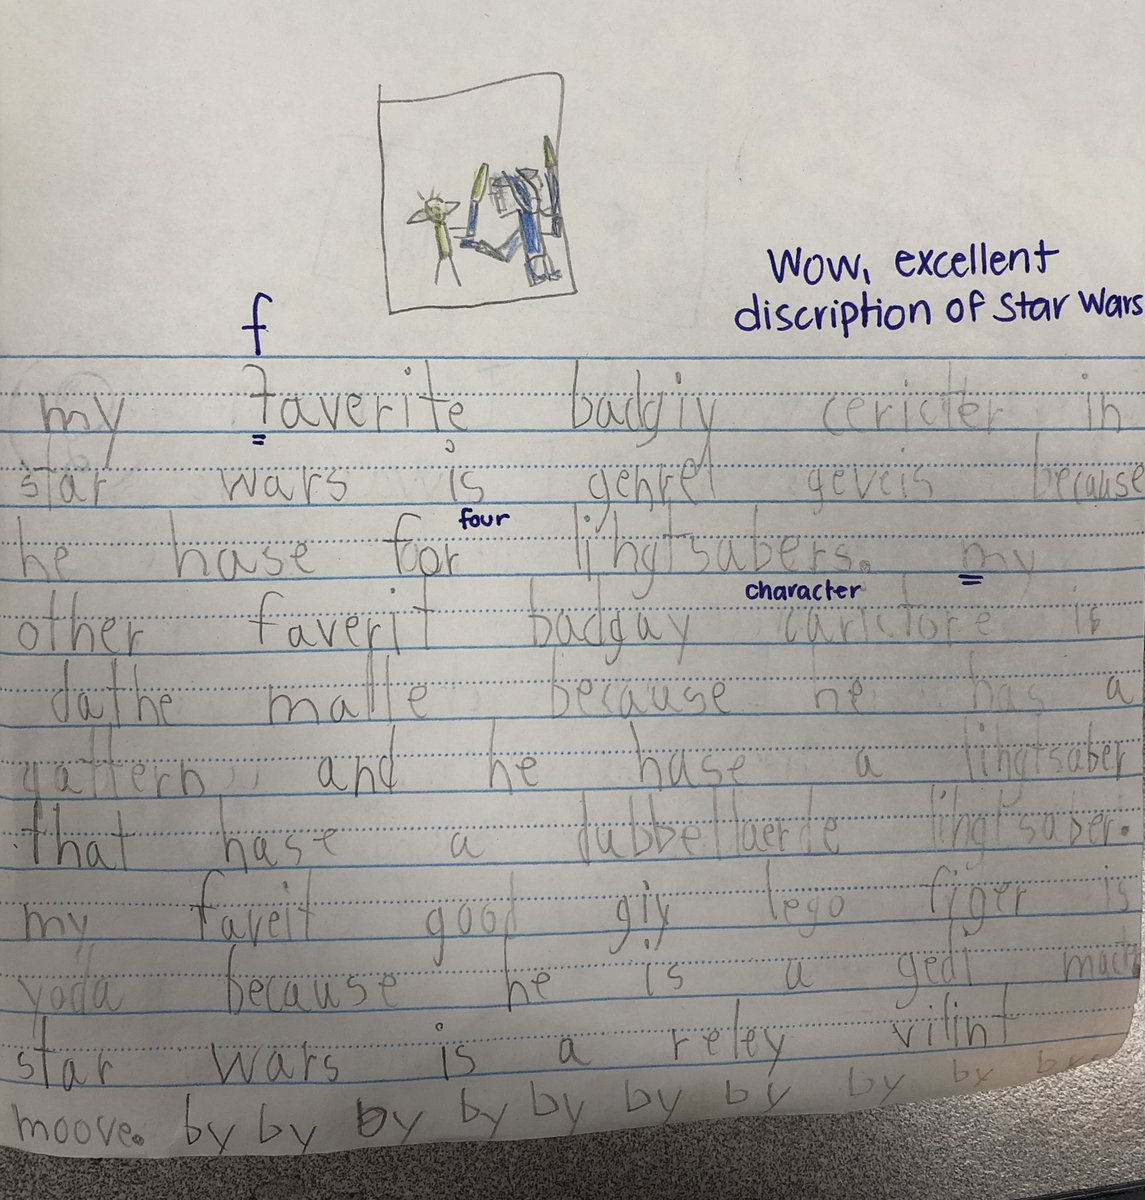 Wow, excellent
discription of Star Wars
f
my faverite badgiy cericter in
star wars is genrel geveis because
four
he hase for lihgtsabers. my
character
other faverit badguy carictore is
dathe malle because he has a
and he hase a lihgtsaber
that hase a dubbellaerde lihgtsaber.
my faveit good giy lego figer is
yoda because he is a gedi
star wars is a reley vilint
moove. by by by by by by by by by